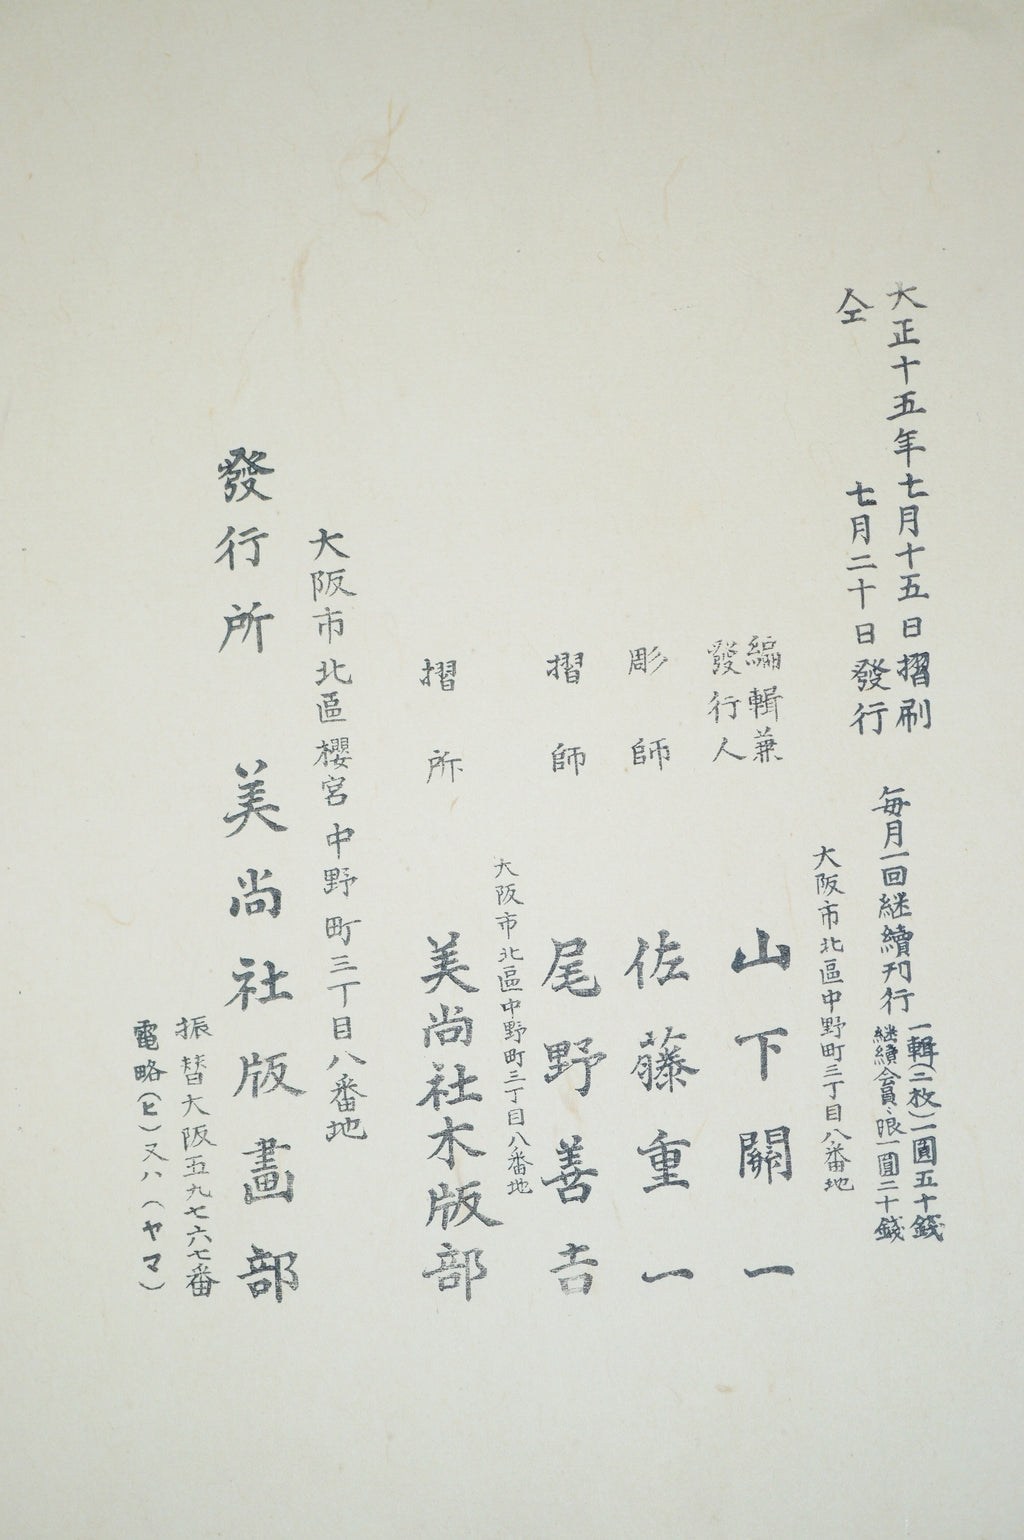 大正十五年七月十五日摺刷
仝 七月二十日發行
每月一回継續刊行
一輯(二枚)一圓五十錢
継續会員ニ限一圓二十錢
大阪市北區中野町三丁目八番地
編輯兼
發行人
山下關一
彫師 佐藤重一
摺師 尾野善吉
大阪市北區中野町三丁目八番地
摺所 美尚社木版部
大阪市北區櫻宮中野町三丁目八番地
發行所 美尚社版畫部
振替大阪五九七六七番
電略(ヒ)又ハ(ヤマ)